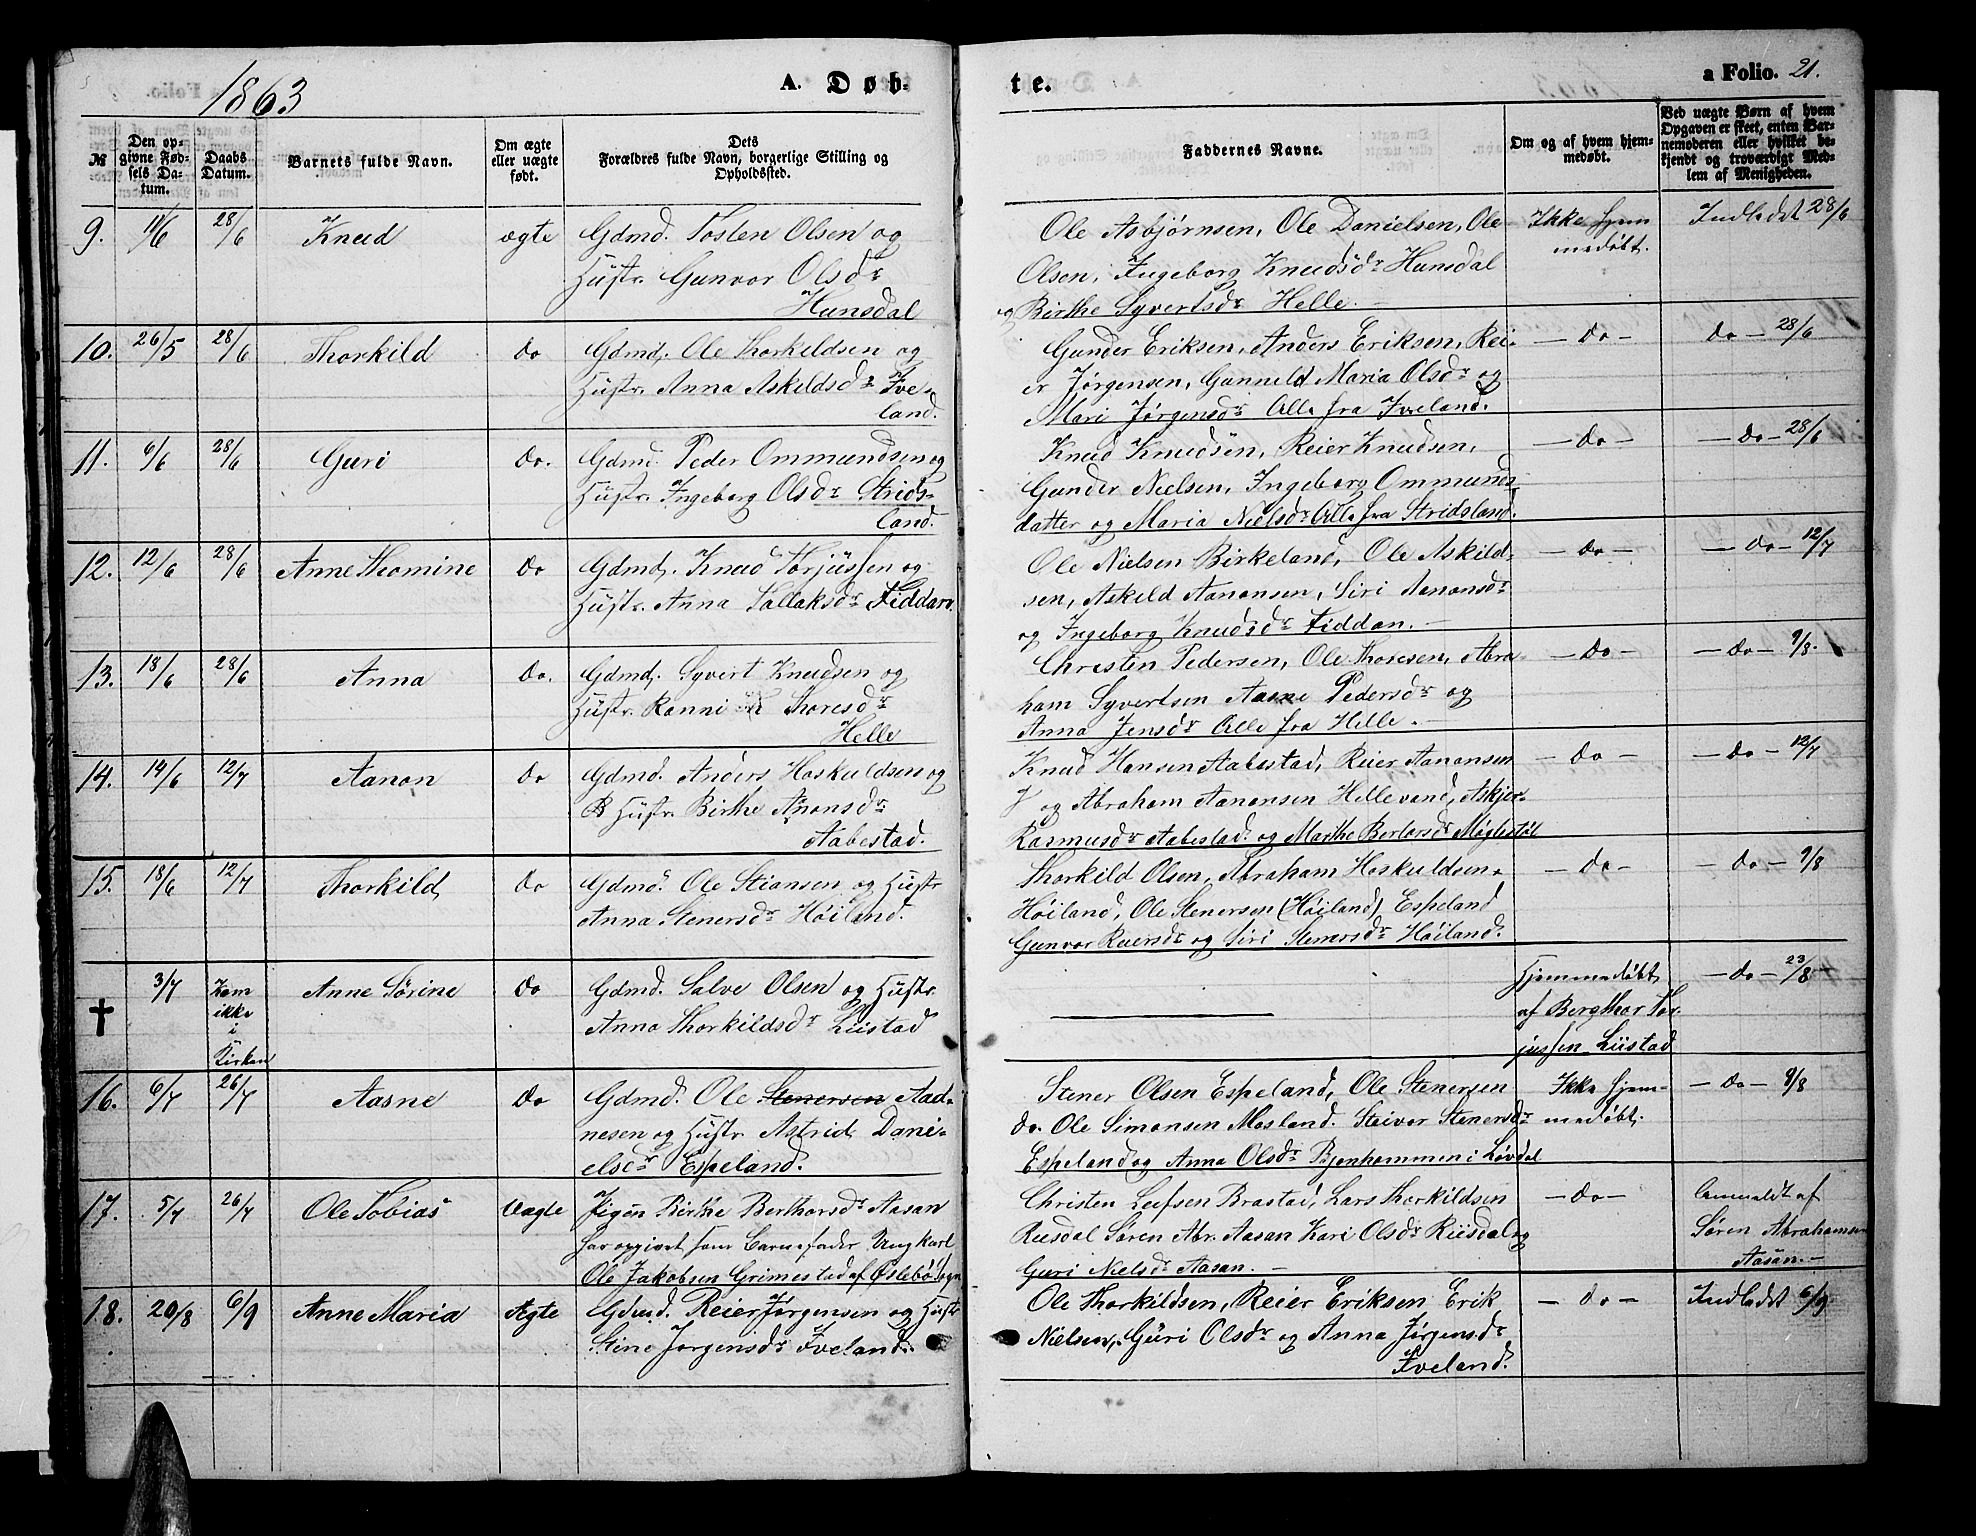 1863
A. Døb-
te.
a Folio. 21.
№
Den op-
givne Fød-
sels Da-
tum.
Daabs
Datum.
Barnets fulde Navn.
Om ægte
eller uægte
født.
Dets
Forældres fulde Navn, borgerlige Stilling og
Opholdssted.
Faddernes Navne.
Om og af hvem hjem-
medøbt.
Ved uægte Børn af hvem
Opgaven er skeet, enten Bar-
nemoderen eller hvilket be-
kjendt og troværdigt Med-
lem af Menigheden.
9. 11/6 28/6 Knud ægte Gdmd. Tosten Olsen og
Hustr. Gunvor Olsdr
Hunsdal
Ole Asbjørnsen, Ole Danielsen, Ole
Olsen, Ingeborg Knudsdr Hunsdal
og Birthe Syvertsdr Helle.
Ikke hjem
medøbt.
Indledet 28/6
10. 26/5 28/6 Thorkild do Gdmd. Ole Thorkildsen og
Hustr. Anna Askildsdr Ive-
land.
Gunder Eriksen, Anders Eriksen, Rei-
er Jørgensen, Gunneld Maria Olsdr og
Mari Jørgensdr Alle fra Iveland.
— do — do — 28/6
11. 6/6 28/6 Guri do. Gdmd. Peder Ommundsen og
Hustr. Ingeborg Olsdr Strids-
land.
Knud Knudsen, Reier Knudsen,
Gunder Nielsen, Ingeborg Ommunds
datter og Maria Nielsdr Alle fra Stridsland.
— do — — do — 28/6
12. 12/6 28/6 Anne Thomine do Gdmd. Knud Torjussen og
Hustr. Anna Tallaksdr Fiddan
Ole Nielsen Birkeland, Ole Askild-
sen, Askild Aanonsen, Siri Aanonsdr
og Ingeborg Knudsdr Fiddan.
— do — — do — 12/7
13. 18/6 28/6 Anna do. Gdmd. Syvert Knudsen og
Hustr. Ranni Thoresdr
Helle
Christen Pedersen, Ole Thoresen, Abra-
ham Syvertsen Aasne Pedersdr og
Anna Jensdr Alle fra Helle.
— do — — do — 9/8.
14. 14/6 12/7 Aanon do Gdmd. Anders Hoskuldsen og
Hustr. Birthe Anonsdr
Aabestad.
Knud Hansen Aabestad, Reier Aanonsen
og Abraham Aanonsen Hellevand, Askjer
Rasmusdr Aabestad og Marthe Bertorsdr Møglestøl
— do — — do — 12/7
15. 18/6 12/7 Thorkild do Gdmd. Ole Stiansen og Hustr
Anna Stenersdr Høiland.
Thorkild Olsen, Abraham Hoskuldsen
Høiland, Ole Stenersen (Høiland) Espeland
Gunvor Reiersdr og Siri Stenersdr Høiland.
— do — — do — 9/8
✝ 3/7 Kom
ikke
i
Kirken
Anne Sørine do Gdmd. Salve Olsen og Hustr.
Anna Thorkildsdr Liistad
Hjemmedøbt
af Bergthor Tor-
jussen Liistad
— do — 23/8
16. 6/7 26/7 Aasne do Gdmd. Ole Stenersen Aad-
nesen og Hustr. Astrid Dani-
elsdr Espeland.
Stener Olsen Espeland, Ole Stenersen
do. Ole Simonsen Mosland. Steivor Stenersdr
Espeland og Anna Olsdr Bjenhommen i Løvdal
Ikke hjem-
medøbt.
— do — 9/8
17. 5/7 26/7 Ole Tobias Uægte Pigen Birthe Berthorsdr Aasan
har opgivet som Barnefader Ungkarl
Ole Jakobsen Grimestad af Øslebø Sogn
Christen Leifsen Brastad, Lars Thorkildsen
Ruisdal Søren Abr. Aasan Kari Olsdr Ruisdal og
Guri Nielsdr Aasan.
— do —
Anmeldt af
Søren Abrahamsen
Aasan.
18. 20/8 6/9 Anne Maria Ægte Gdmd. Reier Jørgensen og Hustr
Stine Jørgensdr Iveland.
Ole Thorkildsen, Reier Eriksen, Erik
Nielsen, Guri Olsdr og Anna Jørgensdr
Iveland.
— do —
Indledet 6/9